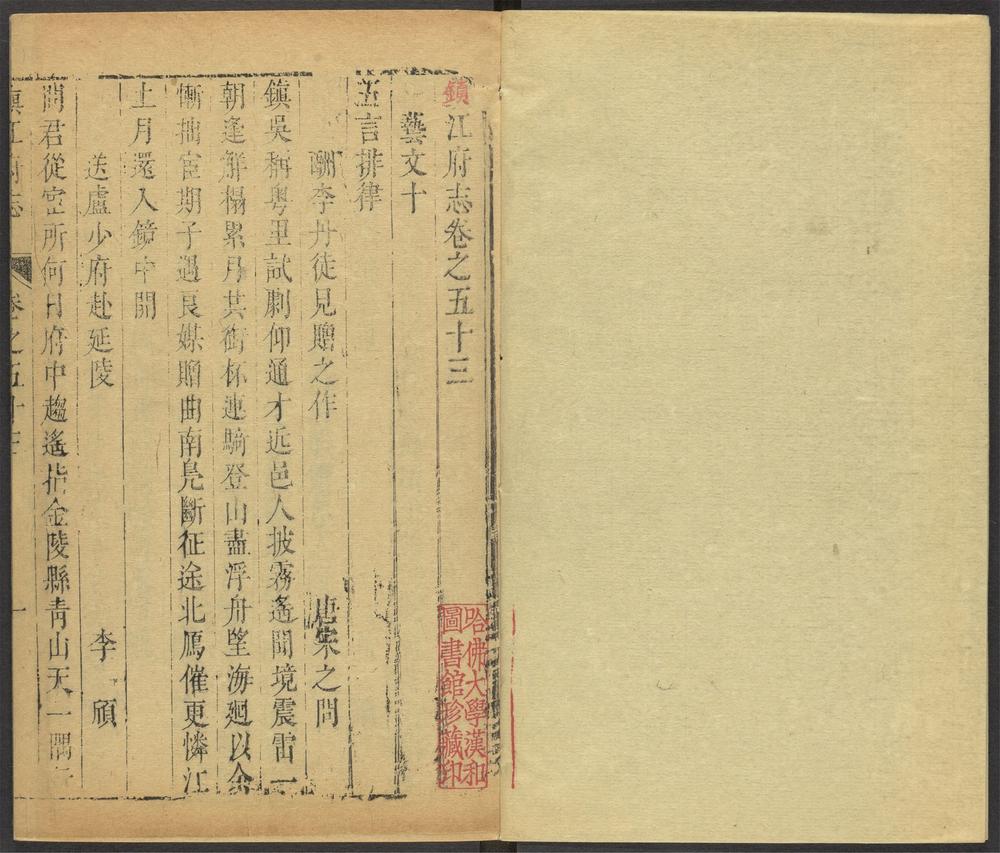 鎮江府志卷之五十三
藝文十
五言排律
酬李丹徒見贈之作 唐宋之問
鎮吳稱粵里試劇仰通才近邑人披霧遙聞境震雷一
朝逢解榻累月共銜杯連騎登山盡浮舟望海廻以余
慚拙宦期子遇良媒贈曲南鳧斷征途北鴈催更憐江
上月還入鏡中開
送盧少府赴延陵 李頎
問君從宦所何日府中趨遙指金陵縣青山天一隅行
鎮江府志 卷之五十三 一
哈佛大學漢和
圖書館珍藏印